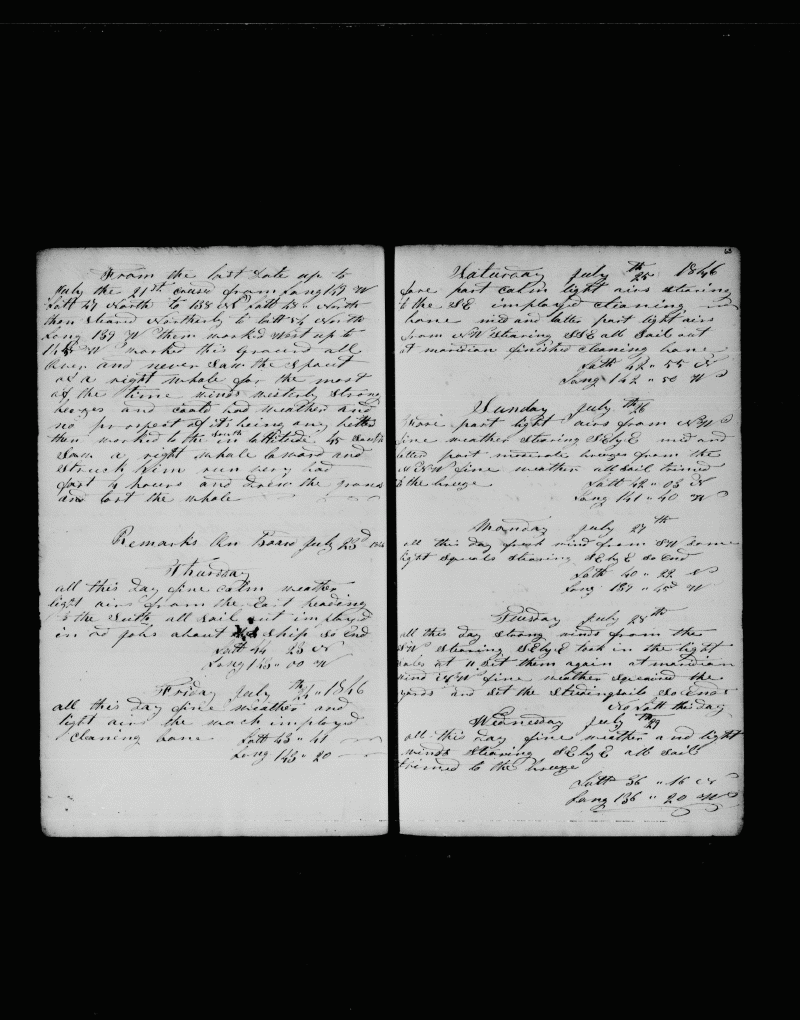 From the last date up to
July the 21st cruised from Long 139 W
Latt 47 North to 138 W Latt 43 North
then steared Northerly to latt 54 North
Long 139 W then worked West up to
W worked this ground all
over and never saw the spout
of a right whale for the most
of the time winds westerly strong
breezes and could bad weather and
no prospect of its being any better
then worked to the South in latitude 45
Saw a right whale loward and
struck him run very bad
fast 4 hours and drew the
and lost the whale
Remarks On Board July 23d 1846
Thursday
all this day fine calm weather
light airs from the East heading
to the South all sail out imployed
in od jobs about Ship So End
Latt 44 23 N
Long 143 " 00 W
Friday July 24th " 1846
all this day fine weather and
light airs the imployed
cleaning bone Latt 43 " 41
Long 143 " 20
63
Saturday July 25th 1846
fore part calm light airs stearing
to the SE imployed cleaning
bone mid and latter part light airs
from NW stearing SE all sail out
at maridian finished cleaning bone
Latt 42 " 55 N
Long 142 " 50 W
Sunday July 26th
Fore part light airs from NW
fine weather stearing SEbyE mid and
latter part moderate breezes from the
NNW fine weather all sail trimed
to the breeze Latt 42 " 03 N
Long 141 " 40 W
Monday July 27th
all this day fresh wind from SW some
light squals stearing SEbyE So End
Latt 40 " 22 N
Long 139 " 45 W
Tuesday July 28th
all this day strong winds from the
SW stearing SEbyE took in the light
sails at 11 set them again at maridian
wind NW fine weather squared the
yards and set the studingsails So Ends
No Latt this day
Wednesday July 29th
all this day fine weather and light
winds stearing SEbyE all sail
trimed to the breeze
Latt 36 " 16 N
Long 136 " 20 W